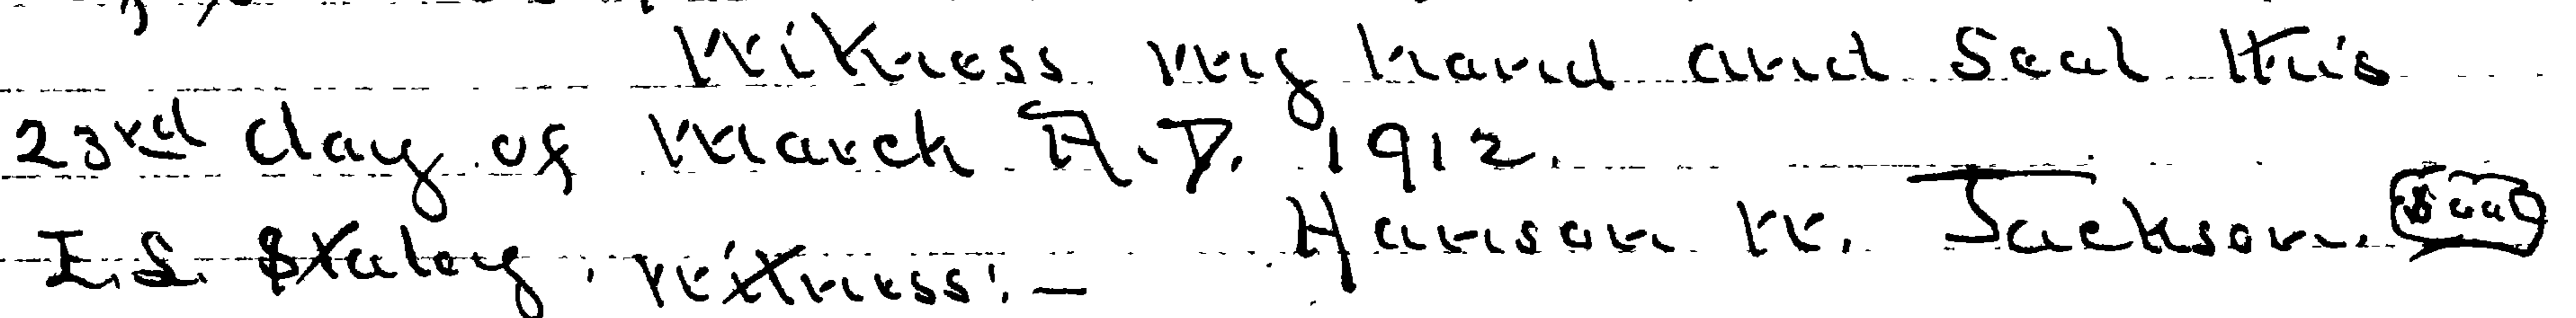 Witness my hand and Seal this
23rd day of March A.D. 1912.
Hanson W. Jackson. Seal
I.S. Staley, witness: —